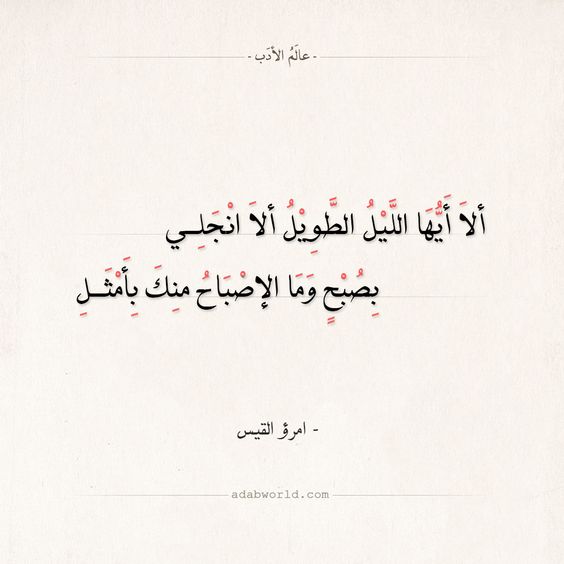 - عالَمُ الأدَب -
ألاَ أَيُّهَا اللَّيْلُ الطَّوِيْلُ ألاَ انْجَلِــي
بِصُبْحٍ وَمَا الإصْبَاحُ منِكَ بِأَمْثَــلِ
- امرؤ القيس
adabworld.com